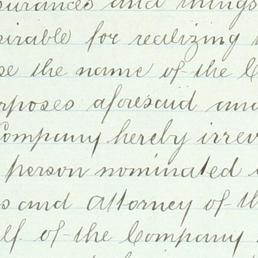 surances and things
sirable for realizing
se the name of the C
rposes aforesaid and
Company hereby irrev
person nominated
s and attorney of th
lf of the Company